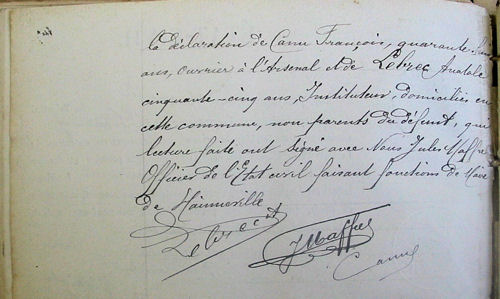 la déclaration de Canu François, quarante
ans, ouvrier à l'Arsenal et de Lebrec Anatole
cinquante-cinq ans, Instituteur, domiciliés en
cette commune, non parents du défunt, qui
lecture faite ont signé avec Nous Jules Maffre
Officier de l'Etat civil faisant fonctions de Maire
de Hainneville
Lebrec JMaffre
Canu